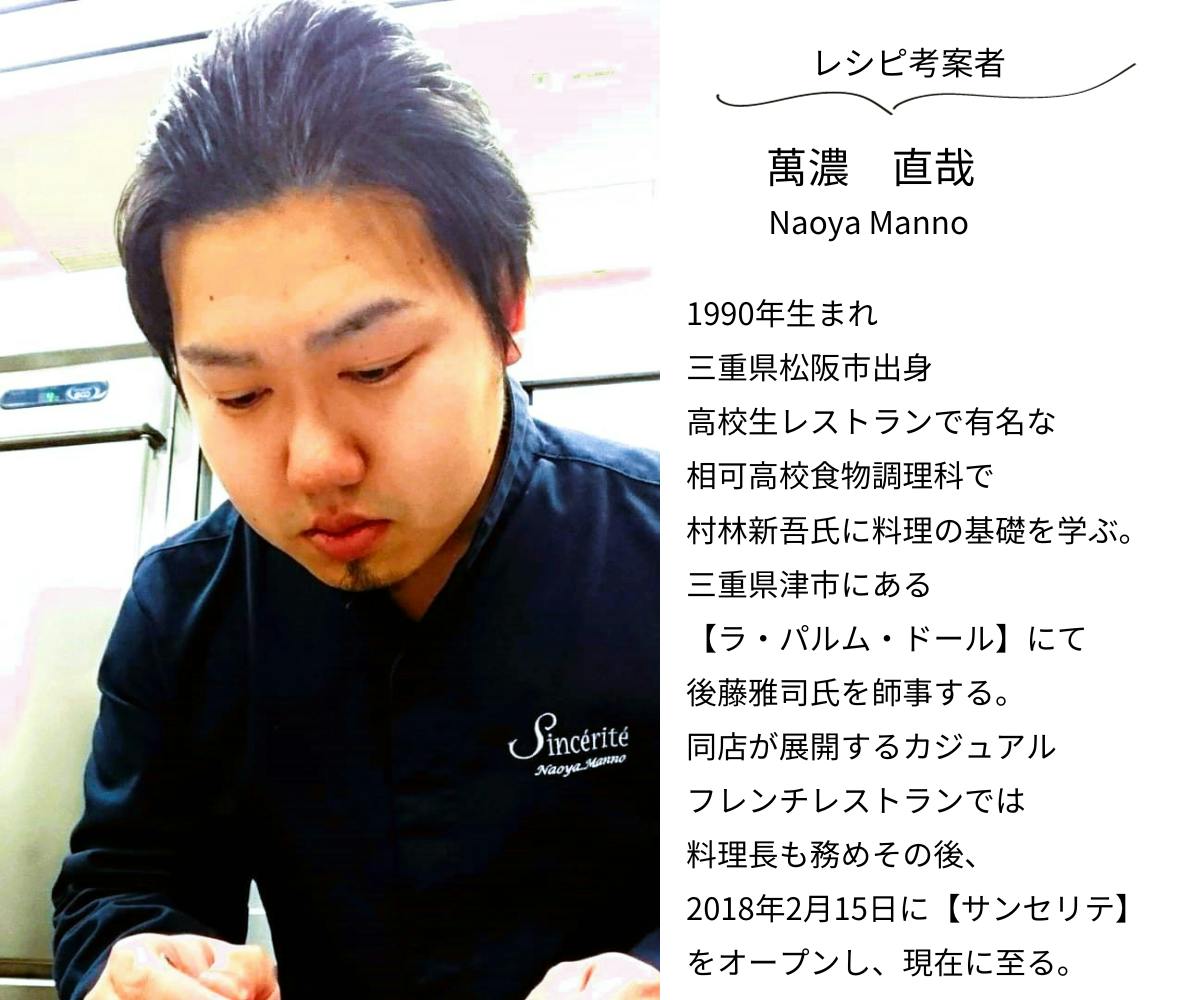 レシピ考案者
萬濃　直哉
Naoya Manno
1990年生まれ
三重県松阪市出身
高校生レストランで有名な
相可高校食物調理科で
村林新吾氏に料理の基礎を学ぶ。
三重県津市にある
【ラ・パルム・ドール】にて
後藤雅司氏を師事する。
同店が展開するカジュアル
フレンチレストランでは
料理長も務めその後、
2018年2月15日に【サンセリテ】
をオープンし、現在に至る。
Sincérité
Naoya Manno